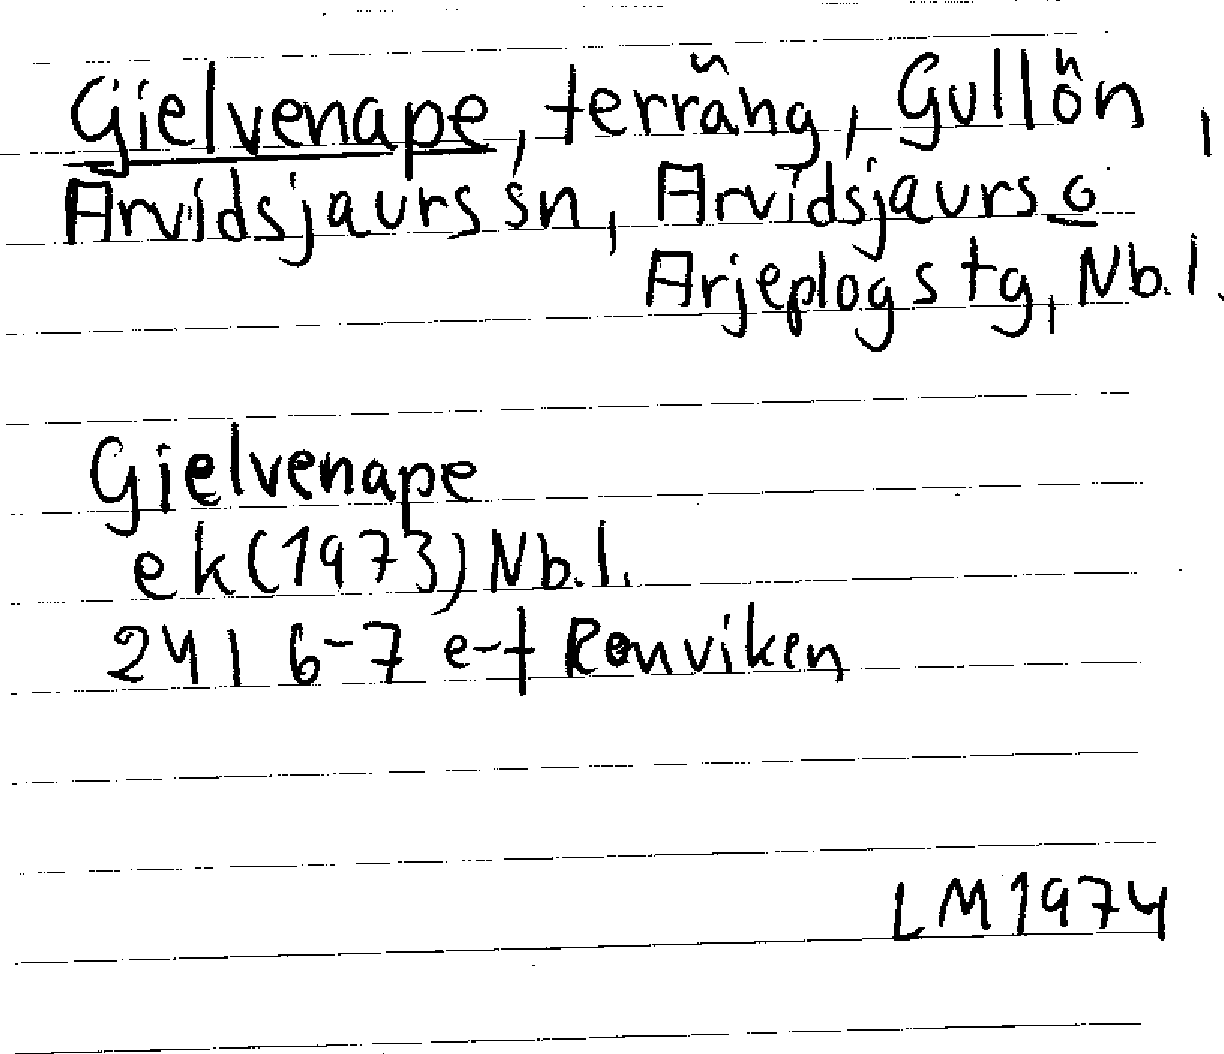 Gielvenape, terräng, Gullön,
Arvidsjaurs sn, Arvidsjaurs o
Arjeplogs tg, Nb.l.
Gielvenape
ek(1973) Nb.l.
24 I 6-7 e-f Renviken
LM 1974